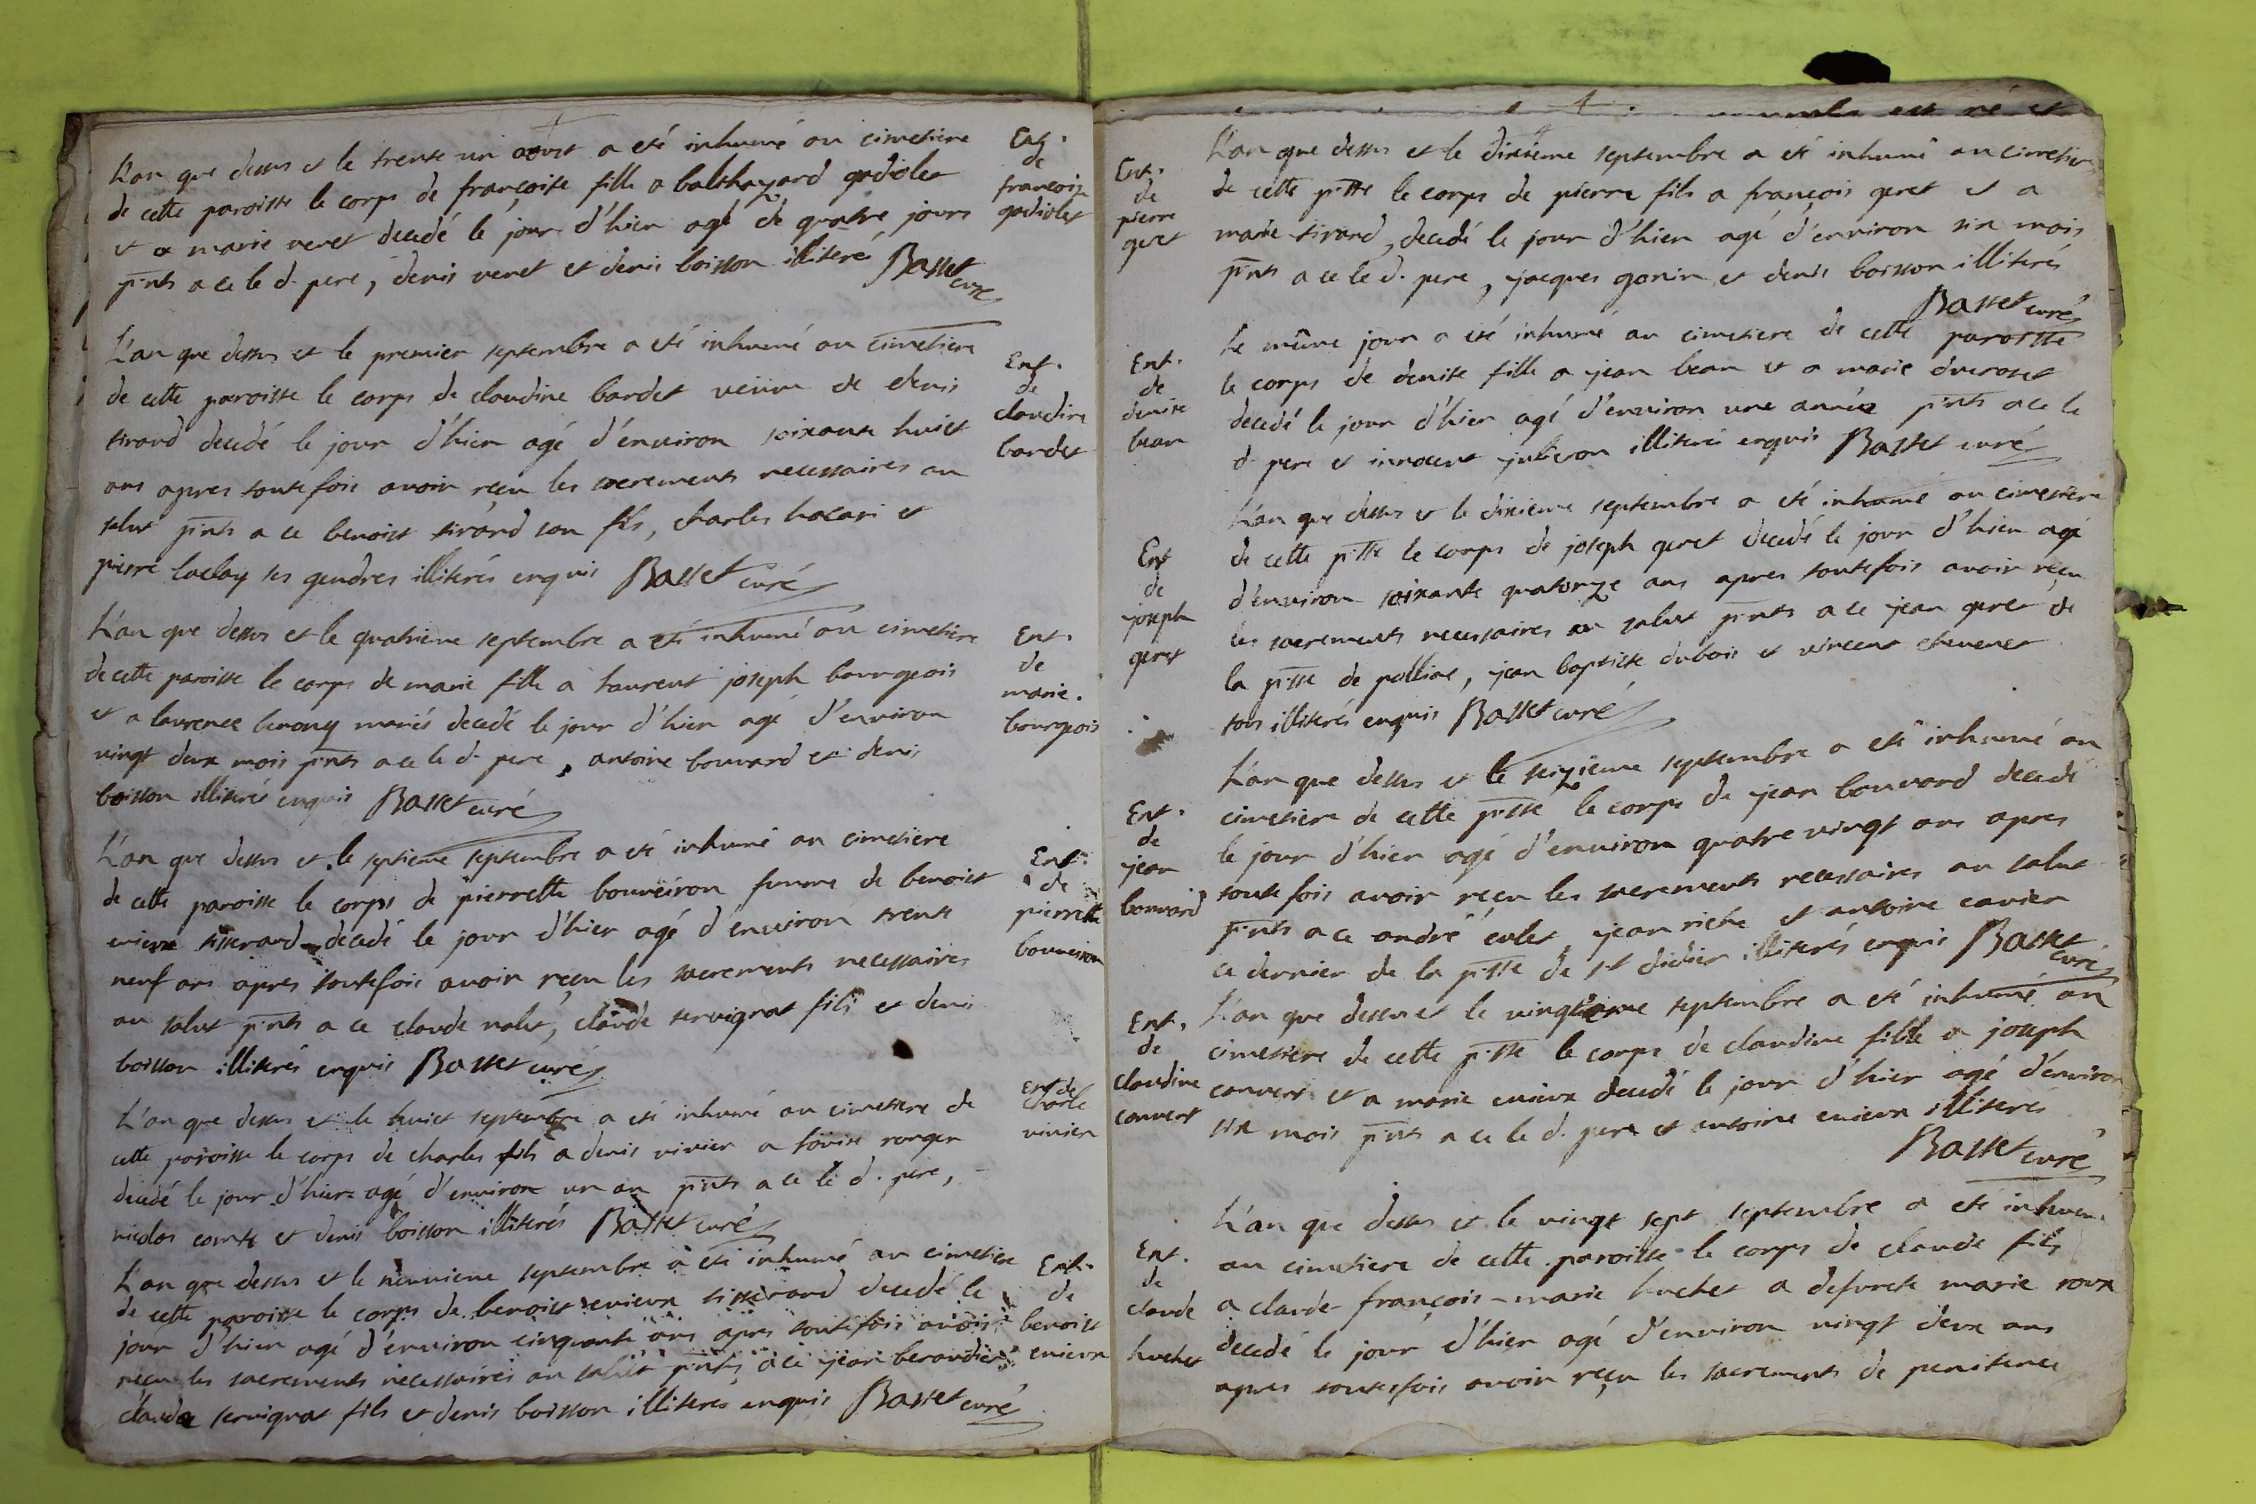 L'an que dessus et le trente un aoust a eté inhumé au cimetiere
de cette paroisse le corps de françoise fille a balthazard gadiolet
et a marie veret decedé le jour d'hier agé de quatre jours
p.nts a ce le d. pere, denis veret et denis boisson illiteré Basset
curé
Ent.
de
françoise
gadiolet
L'an que dessus et le premier septembre a eté inhumé au cimetiere
de cette paroisse le corps de claudine bardet veuve de denis
tirand decedé le jour d'hier agé d'environ soixante huict
ans apres toutefois avoir reçu les sacrements necessaires au
salut p.nts a ce benoist tirand son fils, charles et
pierre ses gendres illiterés enquis Basset curé
Ent.
de
claudine
bardet
L'an que dessus et le quatrieme septembre a eté inhumé au cimetiere
de cette paroisse le corps de marie fille a laurent joseph bourgeois
et a laurence mariés decedé le jour d'hier agé d'environ
vingt deux mois p.nts a ce le d. pere, antoine bouvard et denis
boisson illiterés enquis Basset curé
Ent.
de
marie.
bourgeois
L'an que dessus et le septieme septembre a eté inhumé au cimetiere
de cette paroisse le corps de pierrette bouveiron femme de benoist
enieux tisserand decedé le jour d'hier agé d'environ trente
neuf ans apres toutefois avoir reçu les sacrements necessaires
au salut p.nts a ce claude nalet, claude servignat fils et denis
boisson illiterés enquis Basset curé
Ent.
de
pierrette
bouveiron
L'an que dessus et le huict septembre a eté inhumé au cimetiere de
cette paroisse le corps de charles fils a denis vivier a louise ranger
decedé le jour d'hier agé d'environ un an p.nts a ce le d. pere,
nicolas comte et denis boisson illiterés Basset curé
Ent de
charle
vivier
L'an que dessus et le neuvieme septembre a eté inhumé au cimetiere
de cette paroisse le corps de benoist enieux tisserand decedé le
jour d'hier agé d'environ cinquante ans apres toutefois avoir
reçu les sacrements necessaires au salut p.nts a ce jean beraudier
claude servignat fils et denis boisson illiterés enquis Basset curé
Ent.
de
benoist
enieux
L'an que dessus et le dixieme septembre a eté inhumé au cimetiere
de cette p.sse le corps de pierre fils a françois geret et a
marie tirand, decedé le jour d'hier agé d'environ six mois
p.nts a ce le d. pere, jacques gonin et denis boisson illiterés
Basset curé
Ent.
de
pierre
geret
Le même jour a eté inhumé au cimetiere de cette paroisse
le corps de denise fille a jean beau et a marie ducroset
decedé le jour d'hier agé d'environ une année p.nts a ce le
d. pere et innocent illiterés enquis Basset curé
Ent.
de
denise
beau
L'an que dessus et le dixieme septembre a eté inhumé au cimetiere
de cette p.sse le corps de joseph geret decedé le jour d'hier agé
d'environ soixante quatorze ans apres toutefois avoir reçu
les sacrements necessaires au salut p.nts a ce jean geret de
la p.sse de polliat, jean baptiste dubois et vincent chevenet
tous illiterés enquis Basset curé
Ent
de
joseph
geret
L'an que dessus et le seizieme septembre a eté inhumé au
cimetiere de cette p.sse le corps de jean bouvard decedé
le jour d'hier agé d'environ quatre vingt ans apres
toute fois avoir reçu les sacrements necessaires au salut
p.nts a ce andré jean riche et antoine cavier
ce dernier de la p.sse de st didier illiterés enquis Basset
curé
Ent.
de
jean
bouvard
L'an que dessu et le vingtieme septembre a eté inhumé au
cimetiere de cette p.sse le corps de claudine fille a joseph
convert et a marie enieux decedé le jour d'hier agé d'environ
six mois p.nts a ce le d. pere et antoine enieux illiterés
Basset curé
Ent.
de
claudine
convert
L'an que dessus et le vingt sept septembre a eté inhumé
au cimetiere de cette paroisse le corps de claude fils
a claude françois-marie huchet a defuncte marie roux
decedé le jour d'hier agé d'environ vingt deux ans
apres toutesfois avoir reçu les sacrements de penitence
Ent.
de
claude
huchet